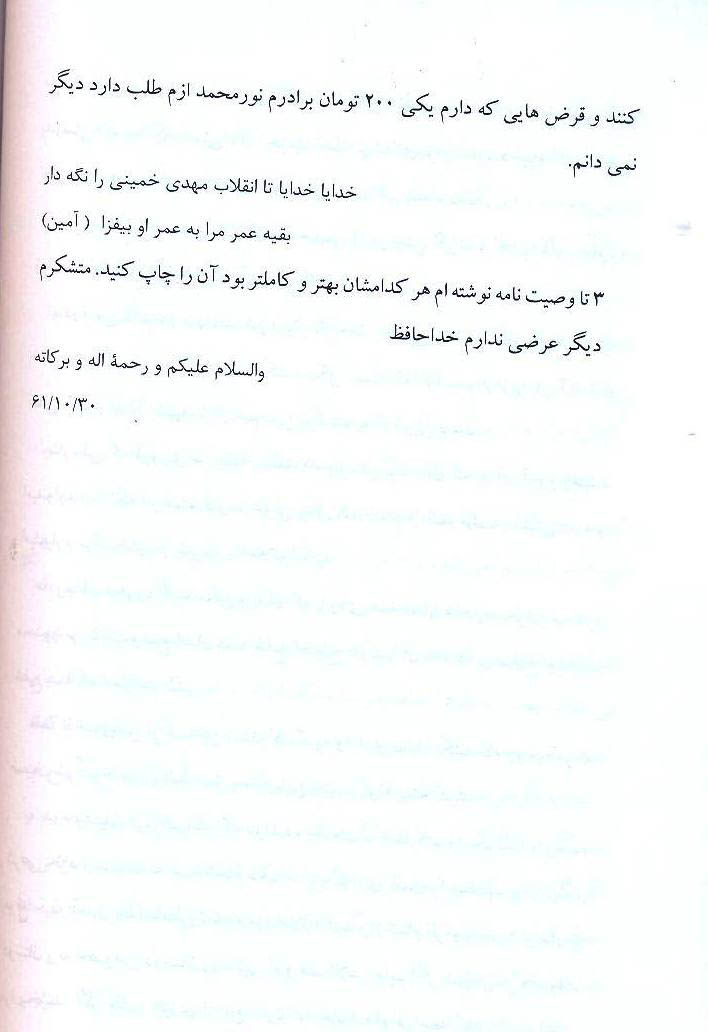 کنند و قرض هایی که دارم یکی ۲۰۰ تومان برادرم نورمحمد ازم طلب دارد دیگر
نمی دانم.
خدایا خدایا تا انقلاب مهدی خمینی را نگه دار
بقیه عمر مرا به عمر او بیفزا ( آمین)
۳ تا وصیت نامه نوشته ام هر کدامشان بهتر و کاملتر بود آن را چاپ کنید. متشکرم
دیگر عرضی ندارم خداحافظ
والسلام علیکم و رحمهٔ اله و برکاته
۶۱/۱۰/۳۰